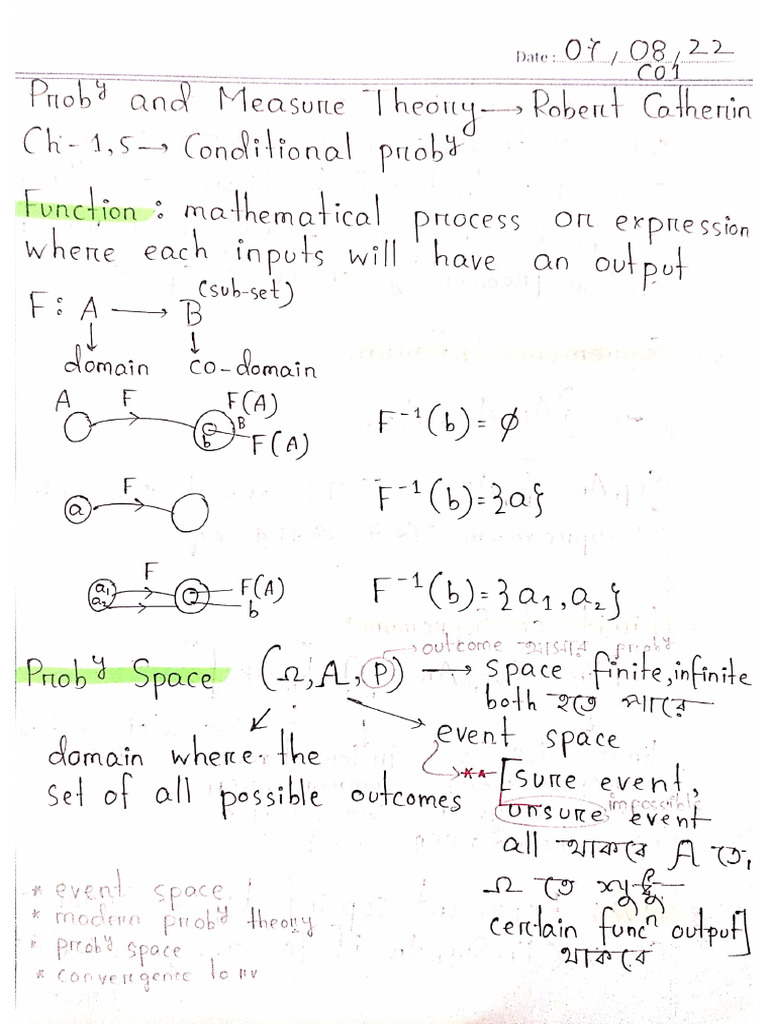 Date : 07, 08, 22
C01
Probʸ and Measure Theory → Robert Catherin
Ch - 1, 5 → Conditional probʸ
Function : mathematical process or expression
where each inputs will have an output
F : A → B (sub-set)
domain co-domain
A F F(A)
B
b F(A)
F⁻¹(b) = ϕ
a F
F⁻¹(b) = {a}
a₁ a₂ F F(A)
b
F⁻¹(b) = {a₁, a₂}
→ outcome আসার probʸ
Probʸ Space (Ω, A, P) → space finite, infinite
both হতে পারে
event space
domain where the
set of all possible outcomes
** [sure event,
impossible
unsure event
all থাকবে A তে,
Ω তে শুধু
certain funcⁿ output]
থাকবে
* event space
* modern probʸ theory
* probʸ space
* convergence to rv